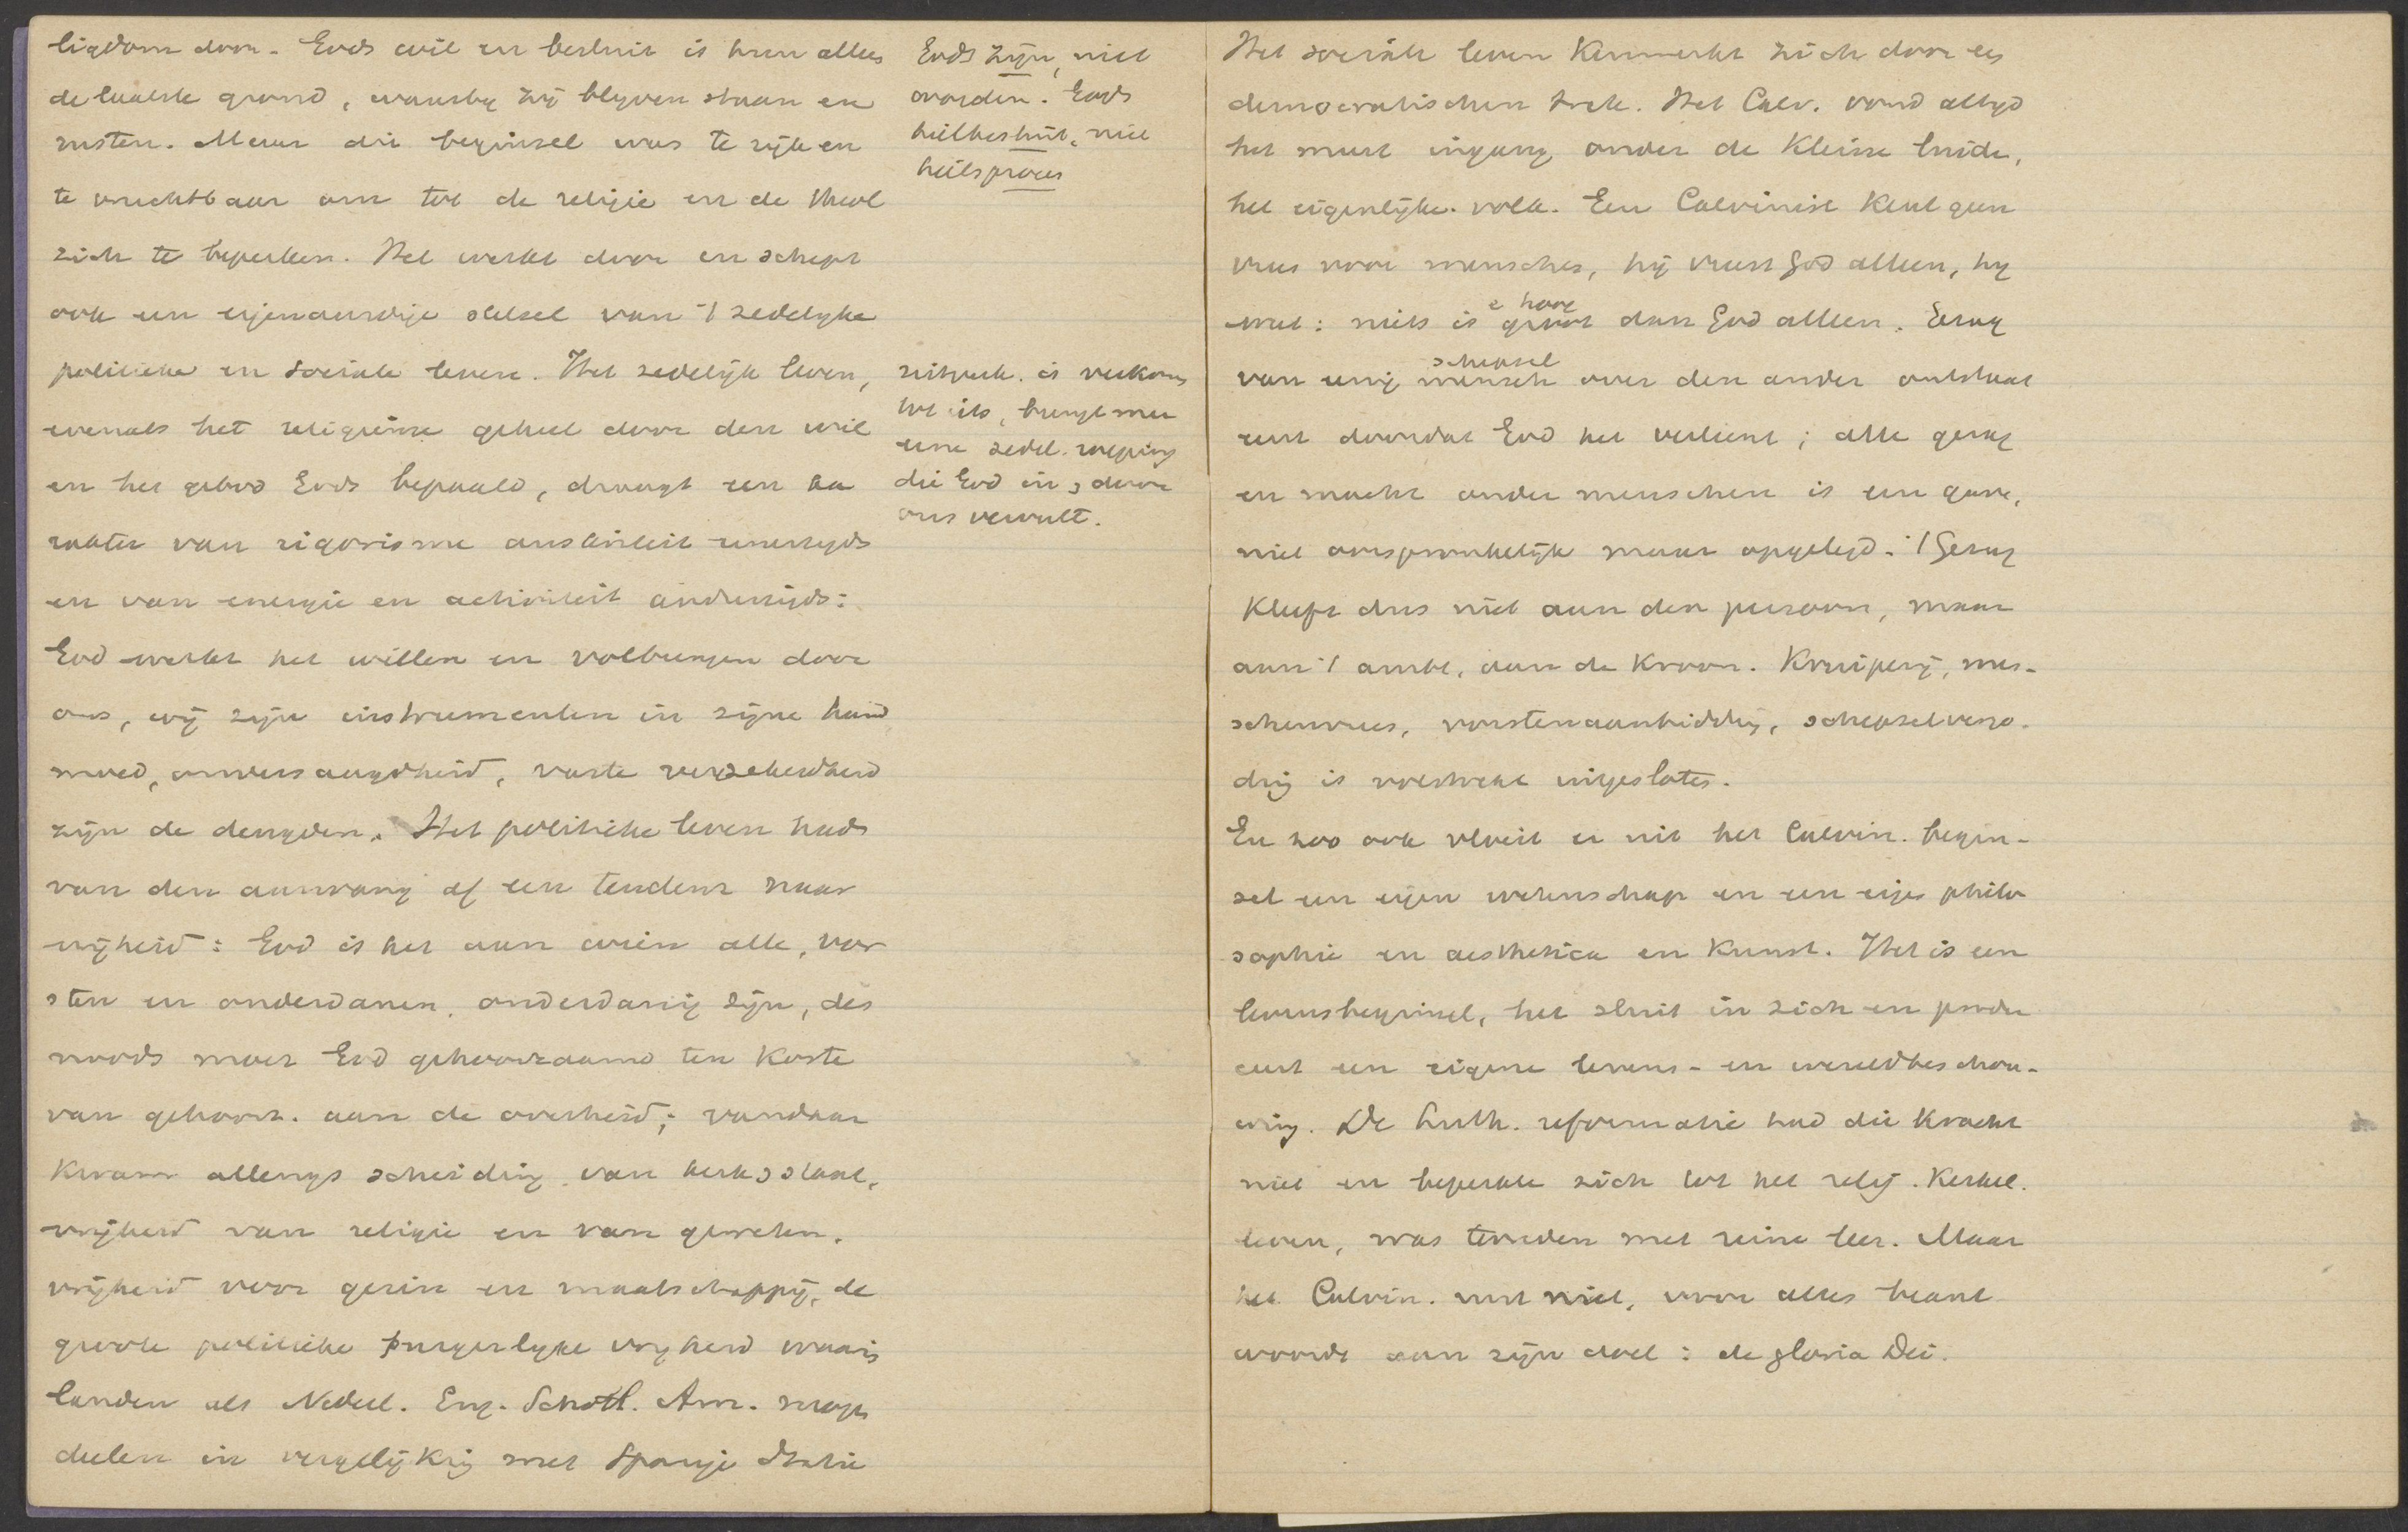 ligdom door. Gods wil en besluit is hun alles
de laatste grond, waarby zij blyven staan en
rusten. Maar dit beginsel was te rijk en
te vruchtbaar om tot de religie en de theol
zich te beperken. Het werkt door en schept
ook een eigenaardige stelsel van 't zedelyke
politieke en sociale leven. Het zedelijk leven,
evenals het religieuse geheel door den wil
en het gebod Gods bepaald, draagt een ka
rakter van rigorisme austeriteit eenerzyds
en van energie en activiteit anderzijds:
God werkt het willen en volbrengen door
ons, wij zijn instrumenten in zijne hand
moed, onversaagdheid, vaste verzekerdheid
zijn de deugden. Het politieke leven had
van den aanvang af een tendenz naar
vrijheid: God is het aan wien alle, vor
sten en onderdanen, onderdanig zijn, des
noods moet God gehoorzaamd ten koste
van gehoorz. aan de overheid; vandaar
kwam allengs scheiding van kerk & staat,
vrijheid van religie en van geweten,
vrijheid voor gezin en maatschappij, de
groote politieke burgerlyke vryheid waarin
landen als Nederl. Eng. Schotl. Am. mogen
deelen in vergelijking met Spanje Italie
Gods zijn, niet
worden. Gods
heilbesluit, niet
heilsproces
uitverk. is verkoren
tot iets, brengt mee
eene zedel. roeping
die God in & door
ons vervult.
Het sociale leven kenmerkt zich door een
democratischen trek. Het Calv. vond altyd
het meest ingang onder de kleine luide,
het eigenlijke volk. Een Calvinist kent geen
vrees voor menschen, hij vreest God alleen, hy
e hoog
weet: niets is groot dan God alleen. Gezag
schepsel
van eenig mensch over den ander ontstaat
eerst doordat God het verleent; alle gezag
en macht onder menschen is een gave,
niet oorspronkelijk maar opgelegd. 't Gezag
kleeft dus niet aan den persoon, maar
aan 't ambt, aan de kroon. Kruiperij, men-
schenvrees, vorstenaanbidding, schepselvergo-
ding is volstrekt uitgesloten.
En zoo ook vloeit er uit het Calvin. begin-
sel een eigen wetenschap en een eigen philo
sophie en aesthetica en kunst. Het is een
levensbeginsel, het sluit in zich en produ
ceert een eigene levens- en wereldbeschou-
wing. De Luth. reformatie had die kracht
niet en beperkte zich tot het relig. kerkel.
leven, was tevreden met reine leer. Maar
het Calvin. rust niet, voor alles beant
woordt aan zijn doel: de gloria Dei.